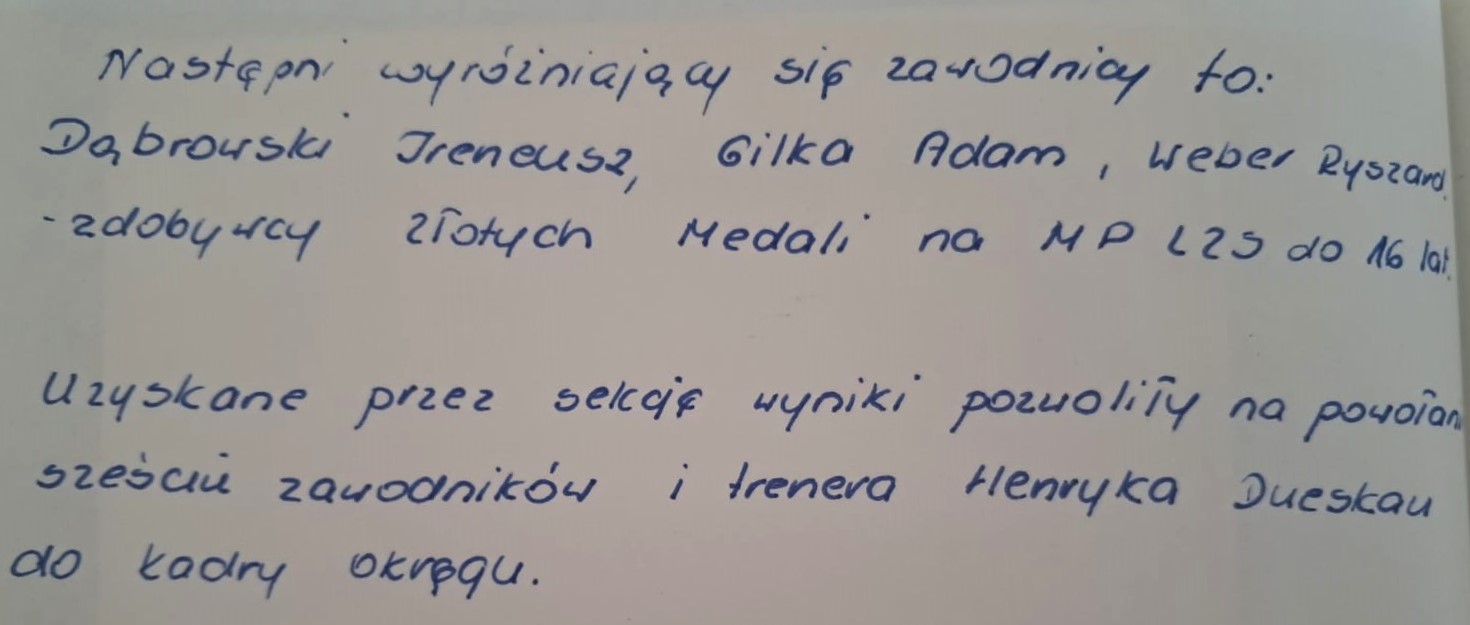 Następni wyróżniający się zawodnicy to:
Dąbrowski Ireneusz, Gilka Adam, Weber Ryszard.
- zdobywcy złotych Medali na MP LZS do 16 lat.
Uzyskane przez sekcję wyniki pozwoliły na powołan
sześciu zawodników i trenera Henryka Dueskau
do kadry okręgu.